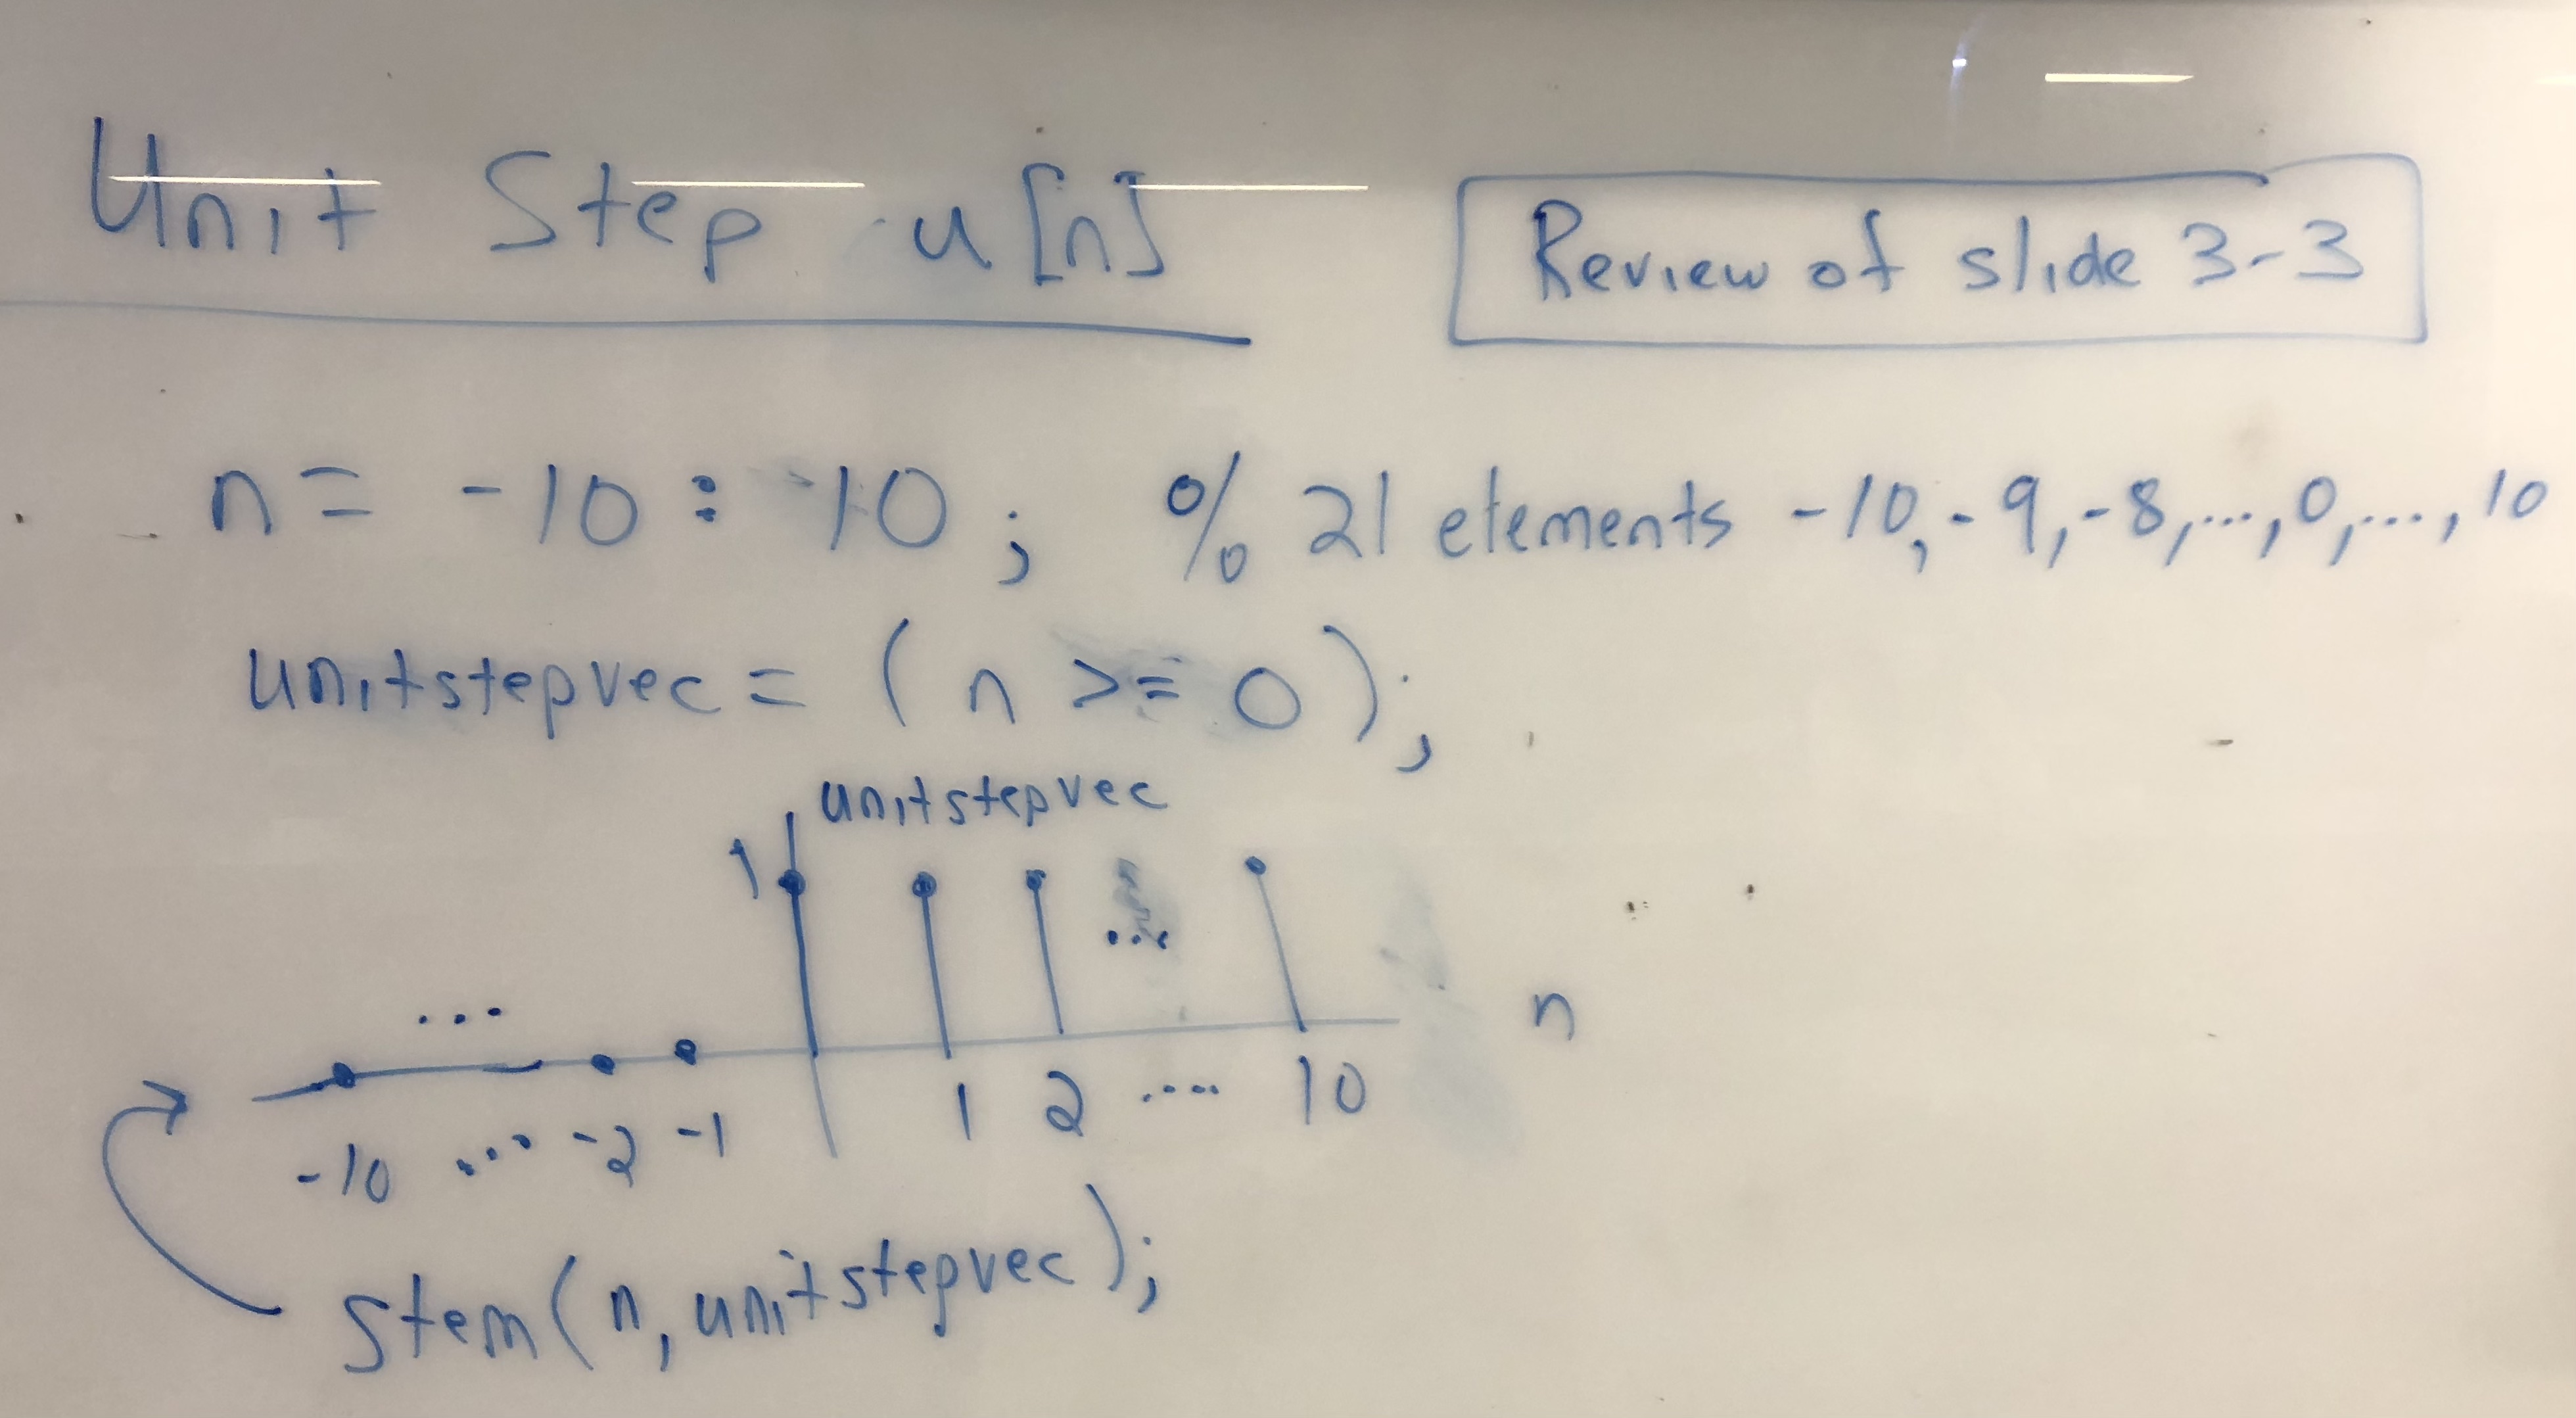 Unit Step u[n]
Review of slide 3-3
n = -10 : 10 ; % 21 elements -10, -9, -8, ..., 0, ..., 10
unitstepvec = ( n >= 0 ) ;
unitstepvec
1
...
...
n
-10 ... -2 -1 1 2 .... 10
stem( n, unitstepvec );